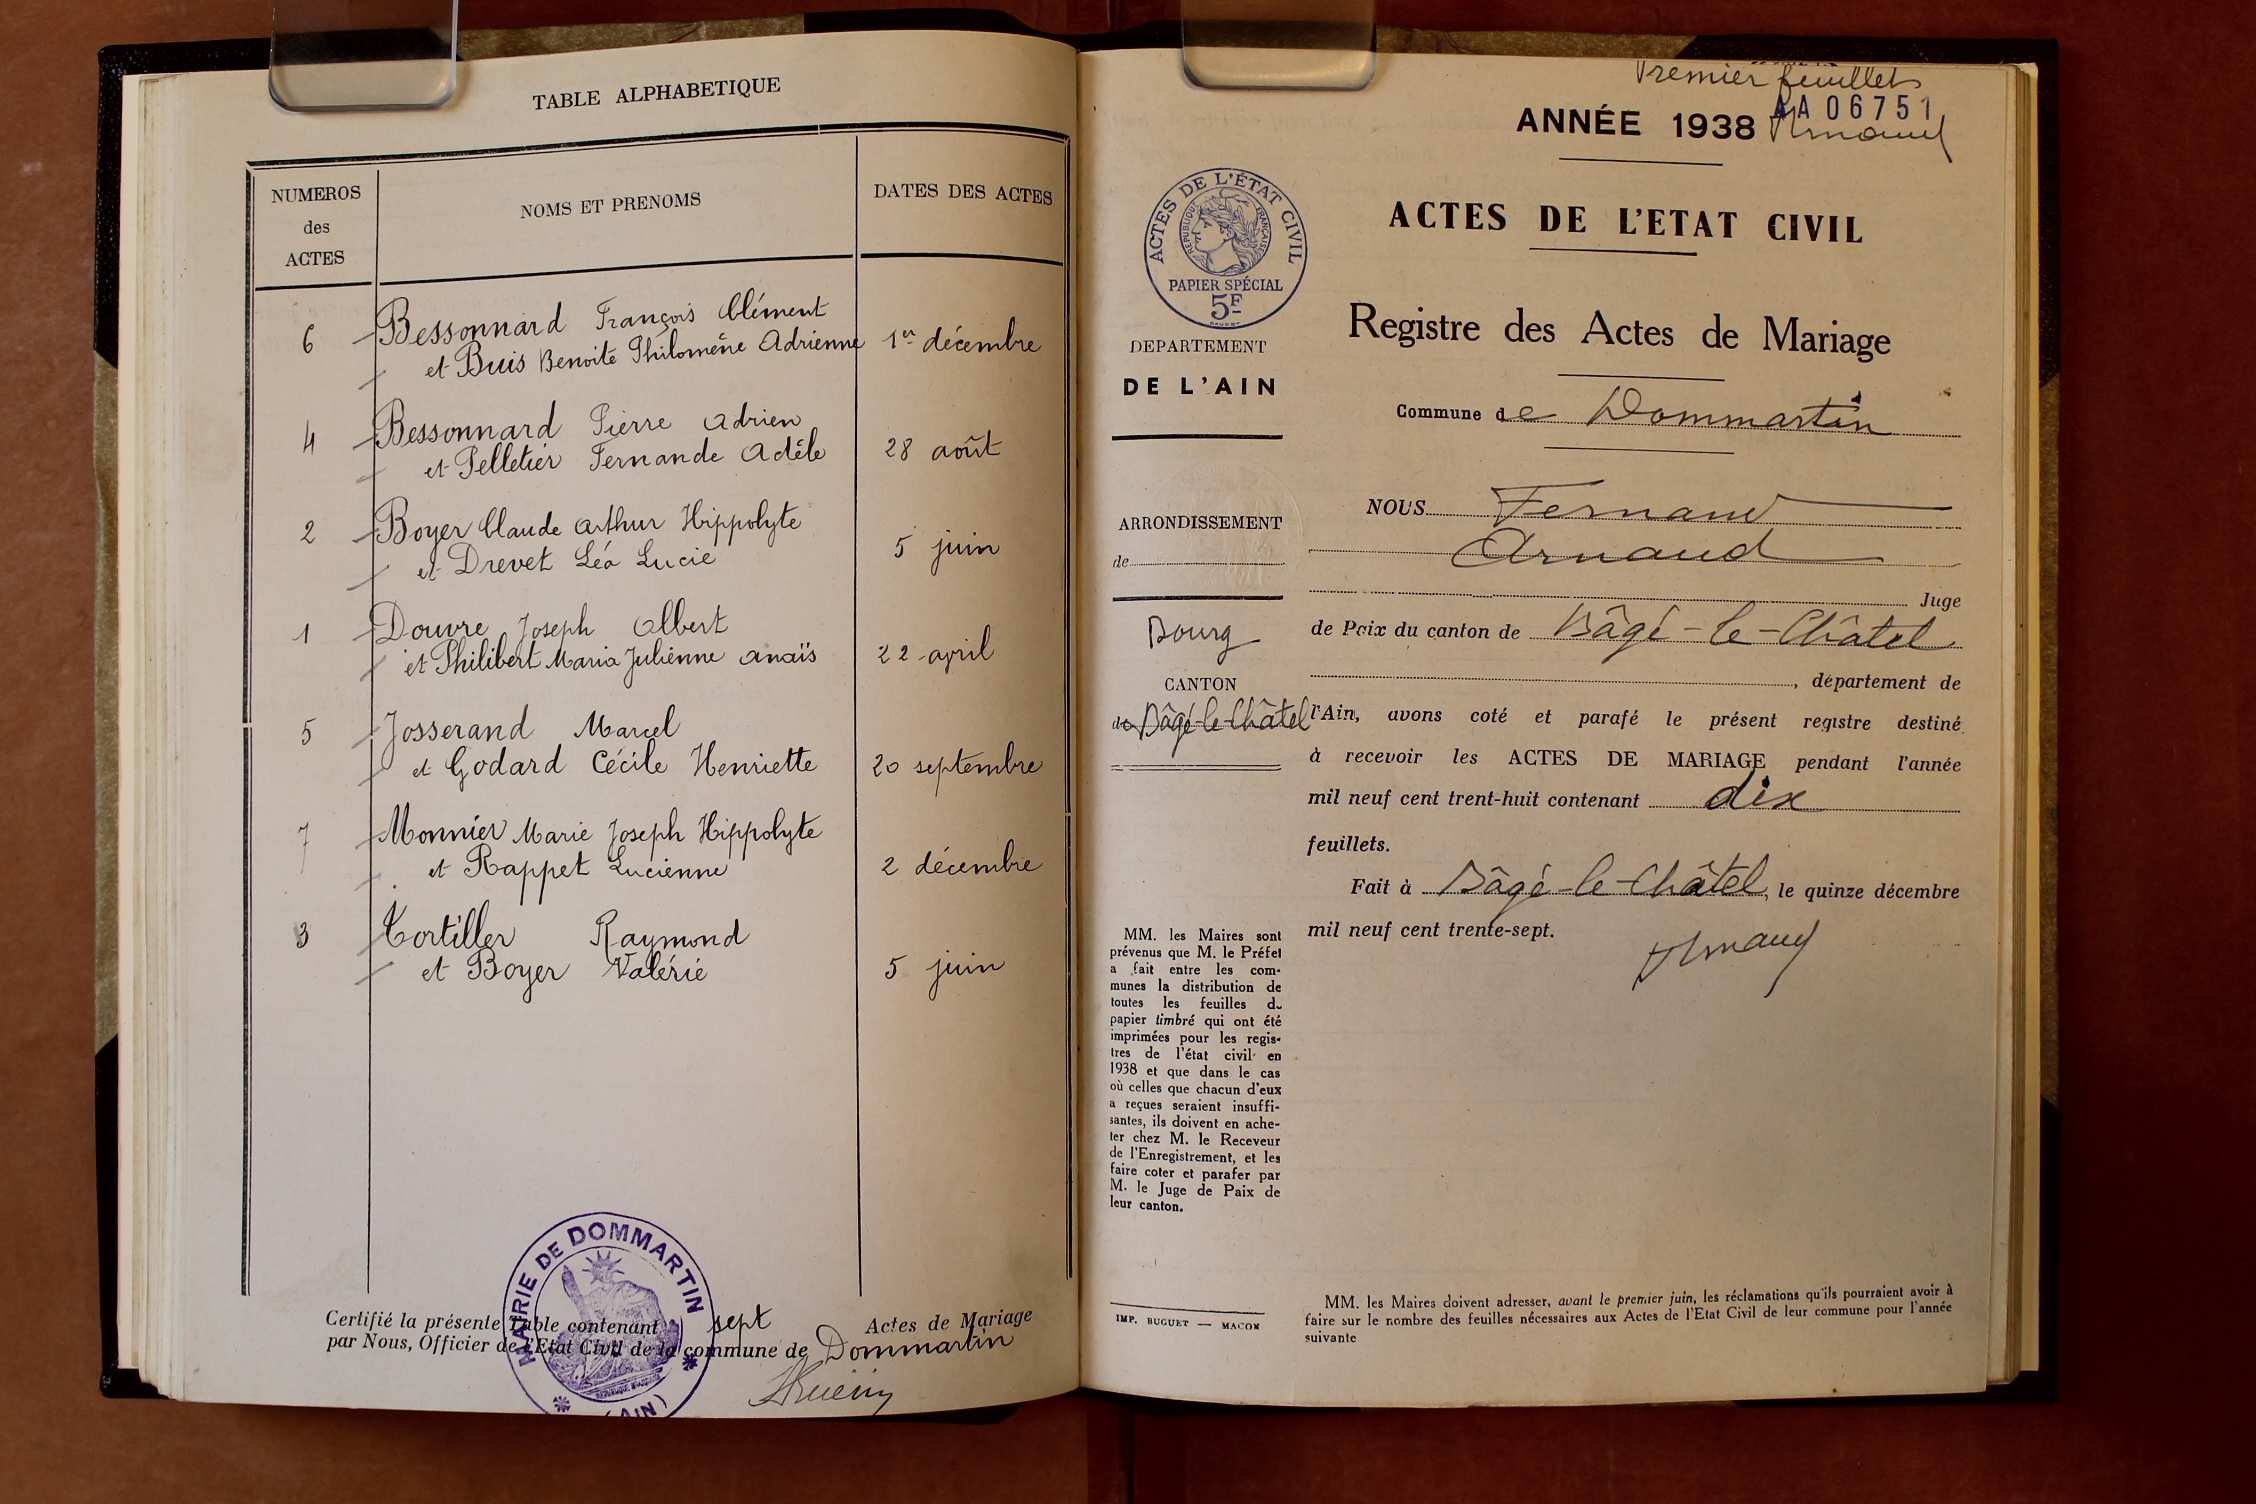 TABLE ALPHABETIQUE
NUMEROS
des
ACTES
NOMS ET PRENOMS
DATES DES ACTES
6 Bessonnard François Clément
et Buis Benoite Philomène Adrienne 1er décembre
4 Bessonnard Pierre Adrien
et Pelletier Fernande Adèle 28 août
2 Boyer Claude Arthur Hippolyte
et Drevet Léa Lucie 5 juin
1 Douvre Joseph Albert
et Philibert Maria Julienne Anaïs 22 avril
5 Josserand Marcel
et Godard Cécile Henriette 20 septembre
7 Monnier Marie Joseph Hippolyte
et Rappet Lucienne 2 décembre
3 Tortiller Raymond
et Boyer Valérie 5 juin
MAIRIE DE DOMMARTIN
(AIN)
Certifié la présente Table contenant sept Actes de Mariage
par Nous, Officier de l'Etat Civil de la commune de Dommartin
Premier feuillet
AA 06751
ANNÉE 1938
ACTES DE L'ETAT CIVIL
Registre des Actes de Mariage
Commune de Dommartin
ACTES DE L'ÉTAT CIVIL
REPUBLIQUE FRANÇAISE
PAPIER SPÉCIAL
5F
DEPARTEMENT
DE L'AIN
ARRONDISSEMENT
de
Bourg
CANTON
de Bâgé-le-Châtel
NOUS Fernand
Arnaud
Juge
de Paix du canton de Bâgé-le-Châtel
, département de
l'Ain, avons coté et parafé le présent registre destiné
à recevoir les ACTES DE MARIAGE pendant l'année
mil neuf cent trent-huit contenant dix
feuillets.
Fait à Bâgé-le-Châtel, le quinze décembre
mil neuf cent trente-sept.
MM. les Maires sont
prévenus que M. le Préfet
a fait entre les com-
munes la distribution de
toutes les feuilles de
papier timbré qui ont été
imprimées pour les regis-
tres de l'état civil en
1938 et que dans le cas
où celles que chacun d'eux
a reçues seraient insuffi-
santes, ils doivent en ache-
ter chez M. le Receveur
de l'Enregistrement, et les
faire coter et parafer par
M. le Juge de Paix de
leur canton.
IMP. BUGUET — MACON
MM. les Maires doivent adresser, avant le premier juin, les réclamations qu'ils pourraient avoir à
faire sur le nombre des feuilles nécessaires aux Actes de l'Etat Civil de leur commune pour l'année
suivante